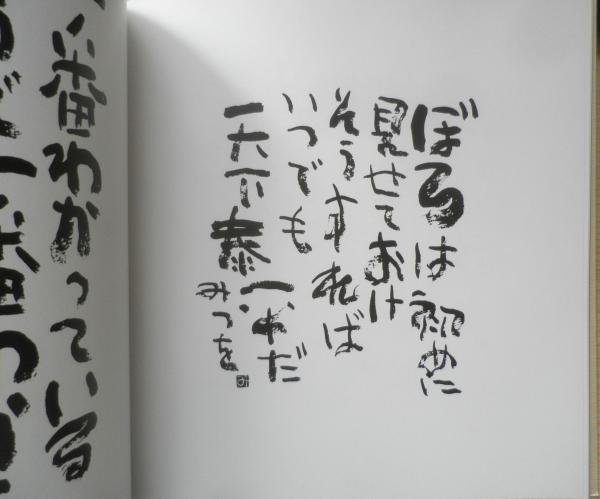 ぼろは初めに
見せておけ
そうすれば
いつでも
天下泰平だ
みつを
一番わかっている
一番わ